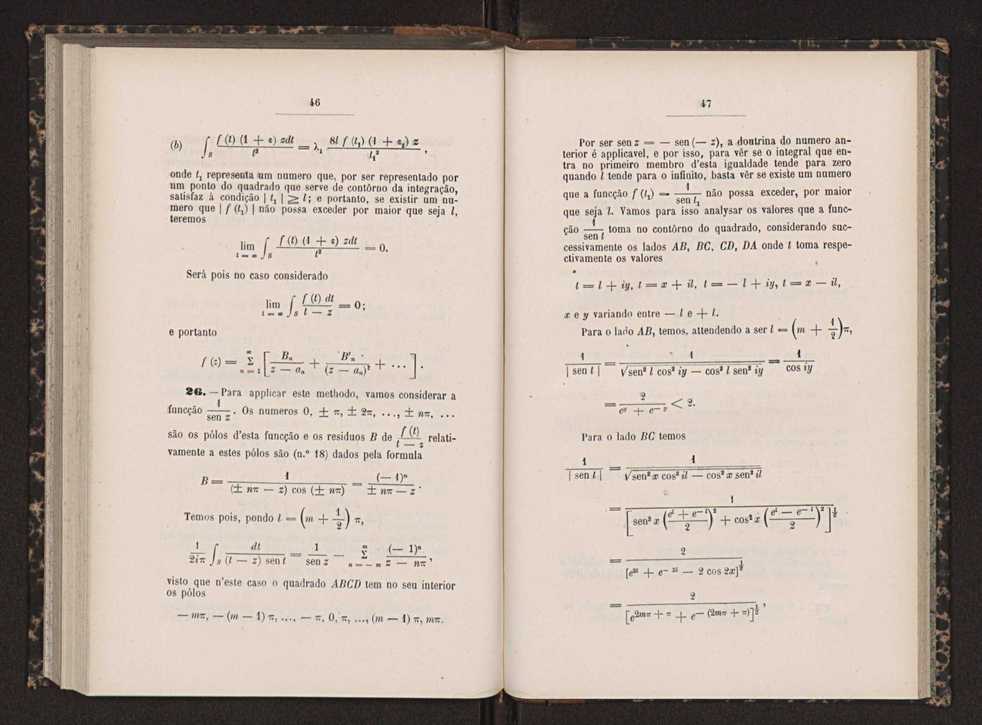 46
(b) ∫_S f (t) (1 + ε) zdt / t² = λ₁ 8l f (t₁) (1 + ε₁) z / t₁² ,
onde t₁ representa um numero que, por ser representado por
um ponto do quadrado que serve de contôrno da integração,
satisfaz à condição | t₁ | ≧ l; e portanto, se existir um nu-
mero que | f (t₁) | não possa exceder por maior que seja l,
teremos
lim_{l = ∞} ∫_S f (t) (1 + ε) zdt / t² = 0.
Será pois no caso considerado
lim_{l = ∞} ∫_S f (t) dt / t — z = 0;
e portanto
f (z) = Σ_{n = 1}^{∞} [ B_n / z — a_n + B'_n / (z — a_n)² + ... ] .
26. — Para applicar este methodo, vamos considerar a
funcção 1 / sen z . Os numeros 0, ± π, ± 2π, ..., ± nπ, ...
são os pólos d'esta funcção e os residuos B de f (t) / t — z relati-
vamente a estes pólos são (n.º 18) dados pela formula
B = 1 / (± nπ — z) cos (± nπ) = (— 1)ⁿ / ± nπ — z .
Temos pois, pondo l = (m + 1/2) π,
1 / 2iπ ∫_S dt / (t — z) sen t = 1 / sen z — Σ_{n = — m}^{m} (— 1)ⁿ / z — nπ ,
visto que n'este caso o quadrado ABCD tem no seu interior
os pólos
— mπ, — (m — 1) π, ..., — π, 0, π, ..., (m — 1) π, mπ.
47
Por ser sen z = — sen (— z), a doutrina do numero an-
terior é applicavel, e por isso, para vêr se o integral que en-
tra no primeiro membro d'esta igualdade tende para zero
quando l tende para o infinito, basta vêr se existe um numero
que a funcção f (t₁) = 1 / sen t₁ não possa exceder, por maior
que seja l. Vamos para isso analysar os valores que a func-
ção 1 / sen t toma no contôrno do quadrado, considerando suc-
cessivamente os lados AB, BC, CD, DA onde t toma respe-
ctivamente os valores
t = l + iy, t = x + il, t = — l + iy, t = x — il,
x e y variando entre — l e + l.
Para o lado AB, temos, attendendo a ser l = (m + 1/2) π,
1 / | sen t | = 1 / √sen² l cos² iy — cos² l sen² iy = 1 / cos iy
= 2 / e^y + e^{— y} < 2.
Para o lado BC temos
1 / | sen t | = 1 / √sen² x cos² il — cos² x sen² il
= 1 / [ sen² x ( e^l + e^{— l} / 2 )² + cos² x ( e^l — e^{— l} / 2 )² ]^{1/2}
= 2 / [e^{2l} + e^{— 2l} — 2 cos 2x]^{1/2}
= 2 / [e^{2mπ + π} + e^{— (2mπ + π)}]^{1/2} ,